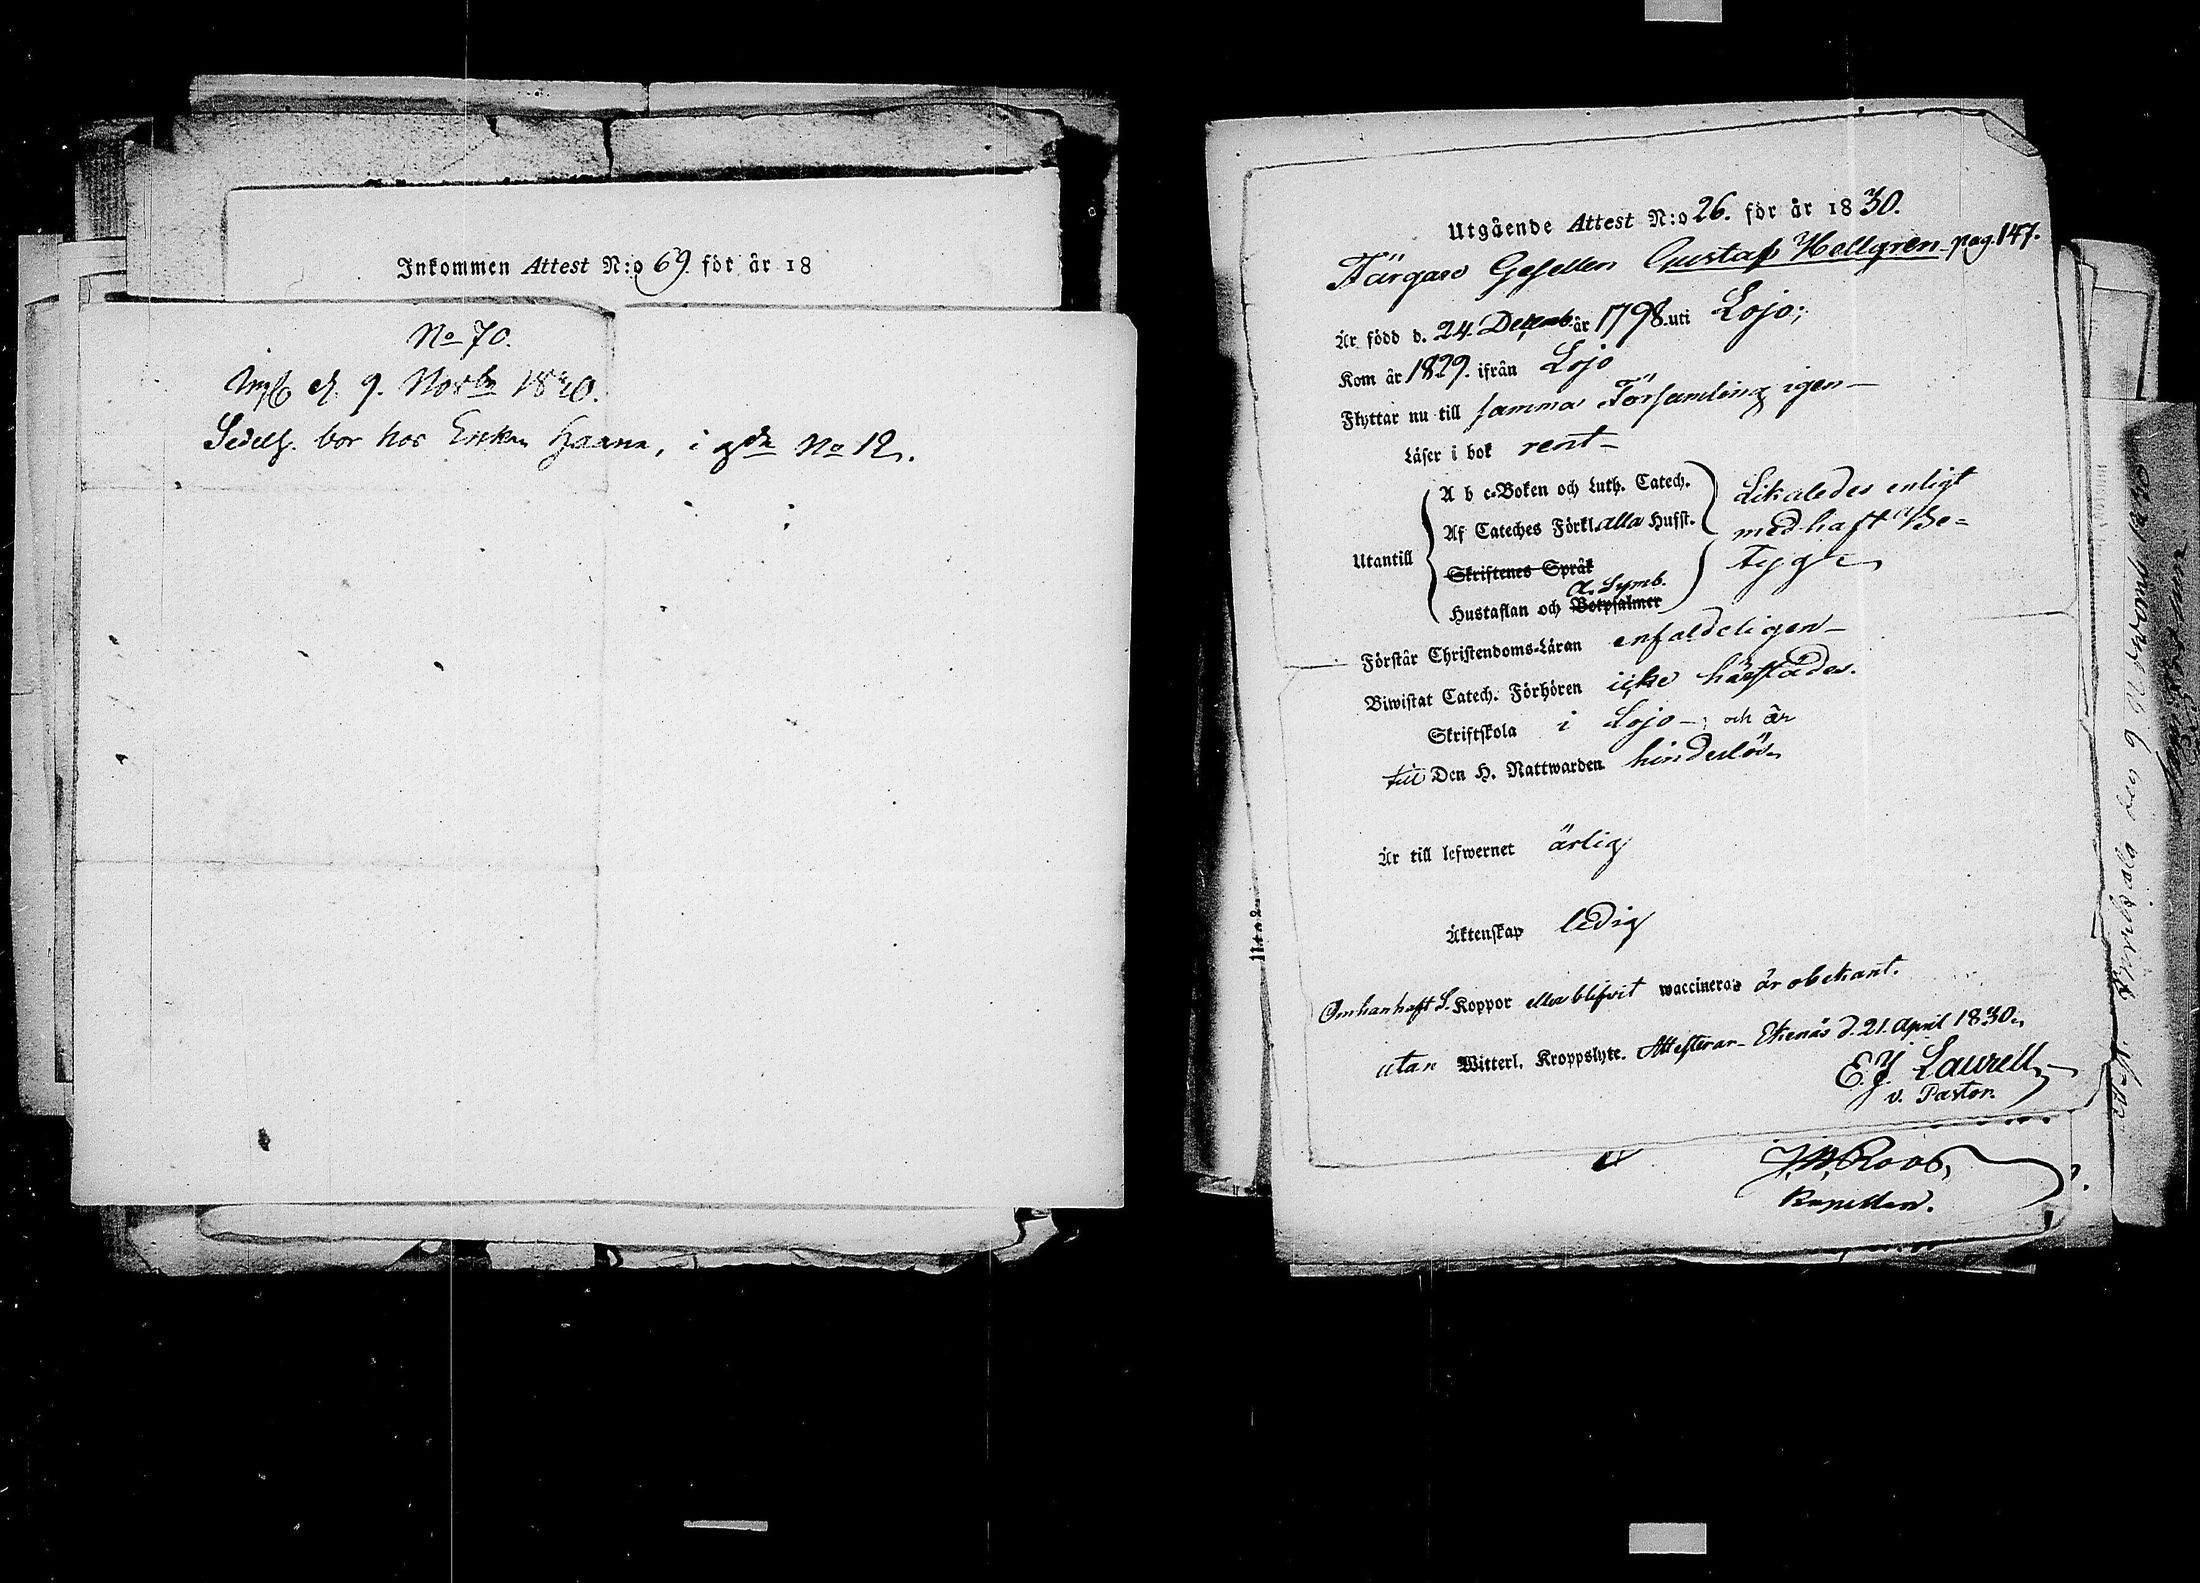 Inkommen Attest N:o 69. för år 18
No 70.
d. 9. Novbr 1830.
Sedelh. bor hos Enkan Haana, i gdn No 12.
Utgående Attest N:o 26. för år 1830.
Färgare Gesellen Gustaf Hellgren pag. 147.
Är född d. 24. Decemb. år 1798. uti Lojo;
Kom år 1829. ifrån Lojo
Flyttar nu till samma Församling igen
Läser i bok rent
Utantill
A b c-Boken och Luth. Catech.
Af Cateches Förkl. alla Hufst.
Skriftenes Språk
a. Symb.
Hustaflan och Botpsalmer
Likaledes enligt
medhaft Be-
tyg
Förstår Christendoms-Läran enfaldeligen
Biwistat Catech. Förhören icke härstädes.
Skriftskola i Lojo och är
till Den H. Nattwarden hinderlös
Är till lefwernet ärlig
Äktenskap ledig
Om han haft S. Koppor eller blifvit waccinerad är obekant.
utan Witterl. Kroppslyte. Attesterar Ekenäs d. 21. April 1830.
E. J. Laurell
v. Pastor.
Roos,
Kapellan.
den 9 1830